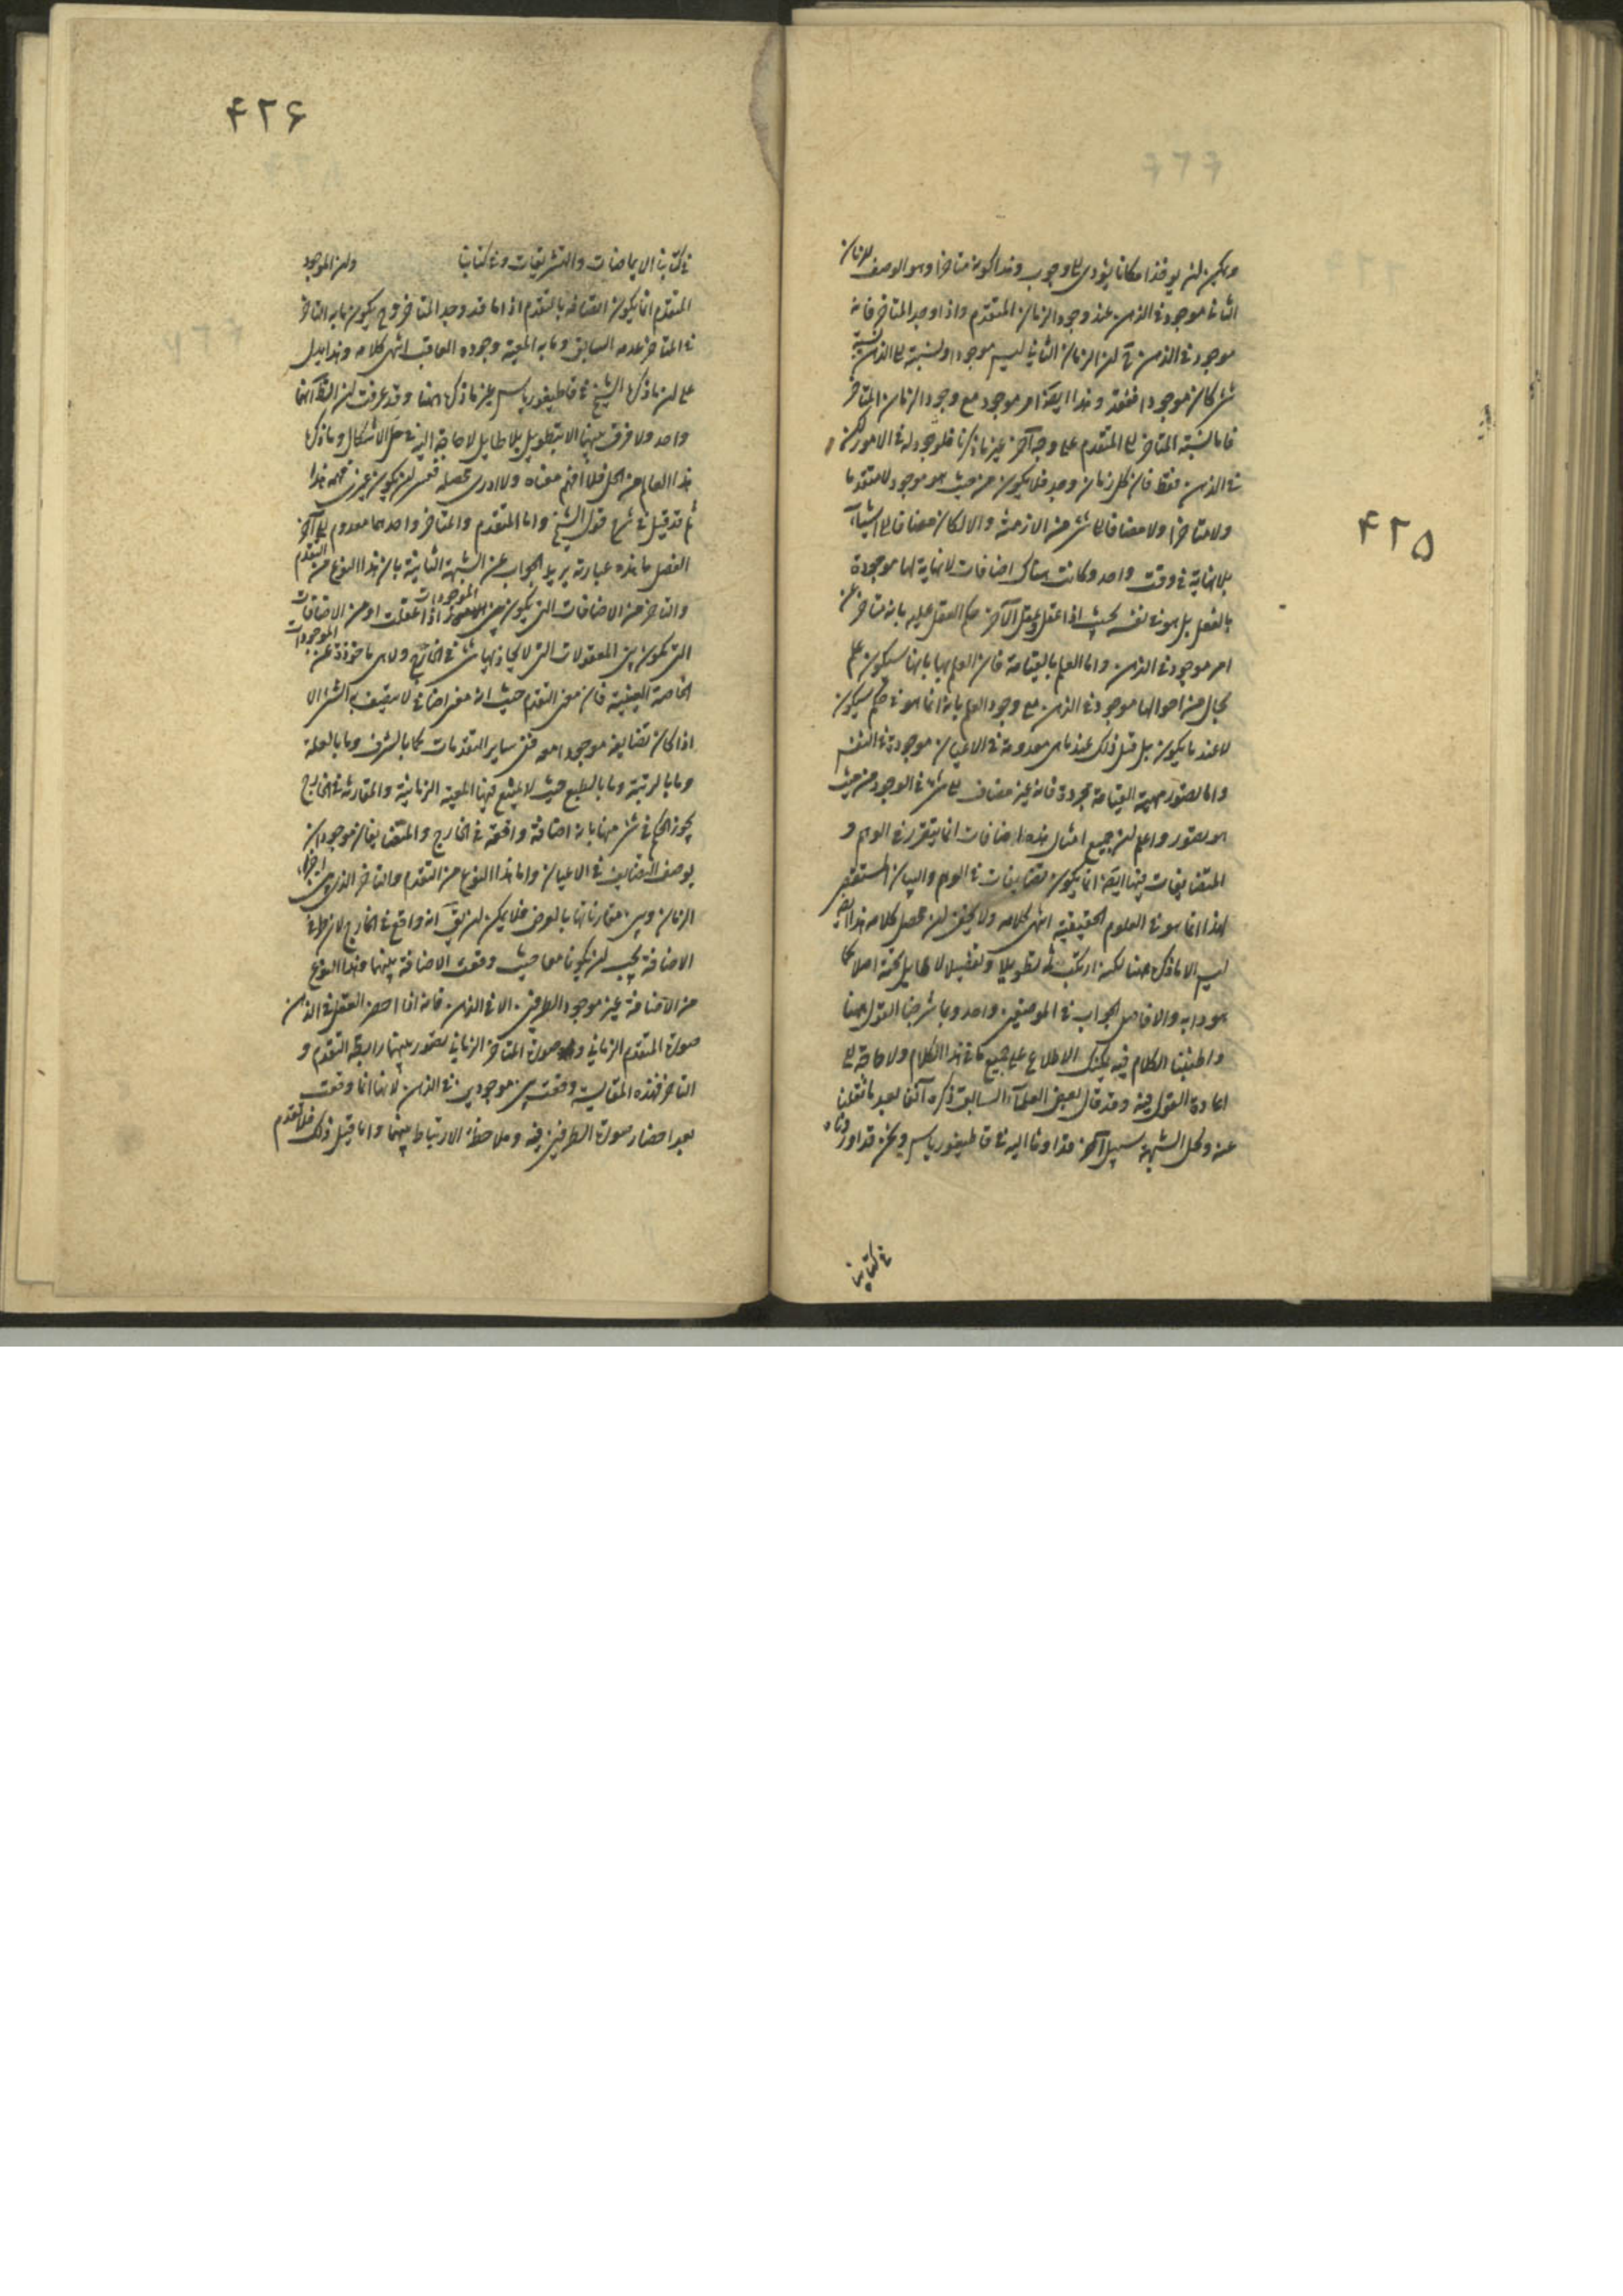 ۴۲۵
ويمكن ان يوخذ امكانا يؤدي الى وجوب وهذا كونه متاخرا وهو الوصف للزمان
الثاني موجود في الذهن عند وجود الزمان المتقدم واذا وجد المتاخر فانه
موجود في الذهن ان الزمان الثاني ليس موجودا ونسبته الى الذهن نسبة
شئ كان موجودا ففقد وهذا ايضا امر موجود مع وجود الزمان المتاخر
فاما نسبة المتاخر الى المتقدم على وجه آخر غير ما ذكرنا فلا وجود له في الامور لكن
في الذهن فقط فان كل زمان وجد فلا يكون من حيث هو موجود لا متقدما
ولا متاخرا ولا مضافا الى شئ من الازمنة والا لكان مضافا الى اشياء
بلا نهاية في وقت واحد وكانت هناك اضافات لا نهاية لها موجودة
بالفعل بل هو في نفسه بحيث اذا عقل وعقل الآخر حكم العقل عليه بانه متاخر عن
امر موجود في الذهن واما العلم بالقيامة فان العلم بها بانها سيكون علم
بحال من احوالها موجود في الذهن مع وجود العلم بانه انما هو في حكم سيكون
لا عند ما يكون بل قبل ذلك عند ما هي معدومة في الاعيان موجودة في النفس
واما تصور مهية القيامة مجردة فانه غير مضاف الى شئ في الوجود من حيث
هو تصور واعلم ان جميع امثال هذه اضافات انما يتقرر في الوهم و
المتضايفات فيها ايضا انما يكون تضايفات في الوهم والبيان المستقصى
لهذا انما هو في العلوم الحقيقية انتهى كلامه ولا يخفى ان محصل كلامه هذا ايضا
ليس الا ما ذكر ههنا لكنه ارتكب فيه تطويلا وتفصيلا لا طايل تحته اصلا كما
هو دابه والا فاصل الجواب في الموضعين واحد وبما شرحنا القول ههنا
واطنبنا الكلام فيه يمكنك الاطلاع على جميع ما في هذا الكلام ولا حاجة الى
اعادة القول فيه وقد قال بعض العلماء السابق ذكره آنفا بعد ما نقلنا
عنه ولحل الشبهة سبيل آخر قد اومأنا اليه في قاطيغورياس ونحن قد اوردناه
في كتابنا
۴۲۶
في كتابنا الايماضات والتشريقات وفي كتابنا ولان الموجود
المتقدم انما يكون اتصافه بالتقدم اذا ما قد وجد المتاخر وح يكون ما به التاخر
في المتاخر عدمه السابق وما به المعية وجوده العاقب انتهى كلامه وهذا يدل
على ان ما ذكره الشيخ في قاطيغورياس غير ما ذكره ههنا وقد عرفت ان الظ انهما
واحد ولا فرق بينهما الا بتطويل بلا طايل لا حاجة اليه في حل الاشكال وما ذكره
هذا العالم من الحل فلا افهم معناه ولا ادري محصله فعسى ان يكون غيري فهمه هذا
ثم قد قيل في شرح قول الشيخ واما المتقدم والمتاخر واحدهما معدوم الى آخر
الفصل ما هذه عبارته يريد الجواب عن الشبهة الثانية بان هذا النوع من التقدم
والتاخر من الاضافات التي يكون بين الموجودات اذا عقلت او من الاضافات
التي تكون بين المعقولات التي لا يحاذيها شئ في الخارج ولا هي ماخوذة عن الموجودات
الخاصة العينية فان معنى التقدم حيث انه معنى اضافي لا يتصف به الشئ الا
اذا كان تضايفه موجودا معه ففي ساير التقدمات كما بالشرف وما بالعلة
وما بالرتبة وما بالطبع حيث لا يمتنع فيها المعية الزمانية والمقارنة في الخارج
يجوز الحكم في شئ منها بانه اضافة واقعة في الخارج والمتضايفان موجودان
بوصف التضايف في الاعيان واما هذا النوع من التقدم والتاخر الذي بين اجزاء
الزمان وبين مقارناتها بالعرض فلا يمكن ان يق انه واقع في الخارج لان طرفي
الاضافة يجب ان يكونا معا حيث وقعت الاضافة بينهما وهذا النوع
من الاضافة غير موجود الطرفين الا في الذهن فانه اذا احضر العقل في الذهن
صورة المتقدم الزماني وصورة المتاخر الزماني تصور بينهما رابطة التقدم و
التاخر فهذه المقايسة وقعت بين موجودين في الذهن لانها انما وقعت
بعد احضار صورة الطرفين فيه وملاحظة الارتباط بينهما واما قبل ذلك فلا تقدم